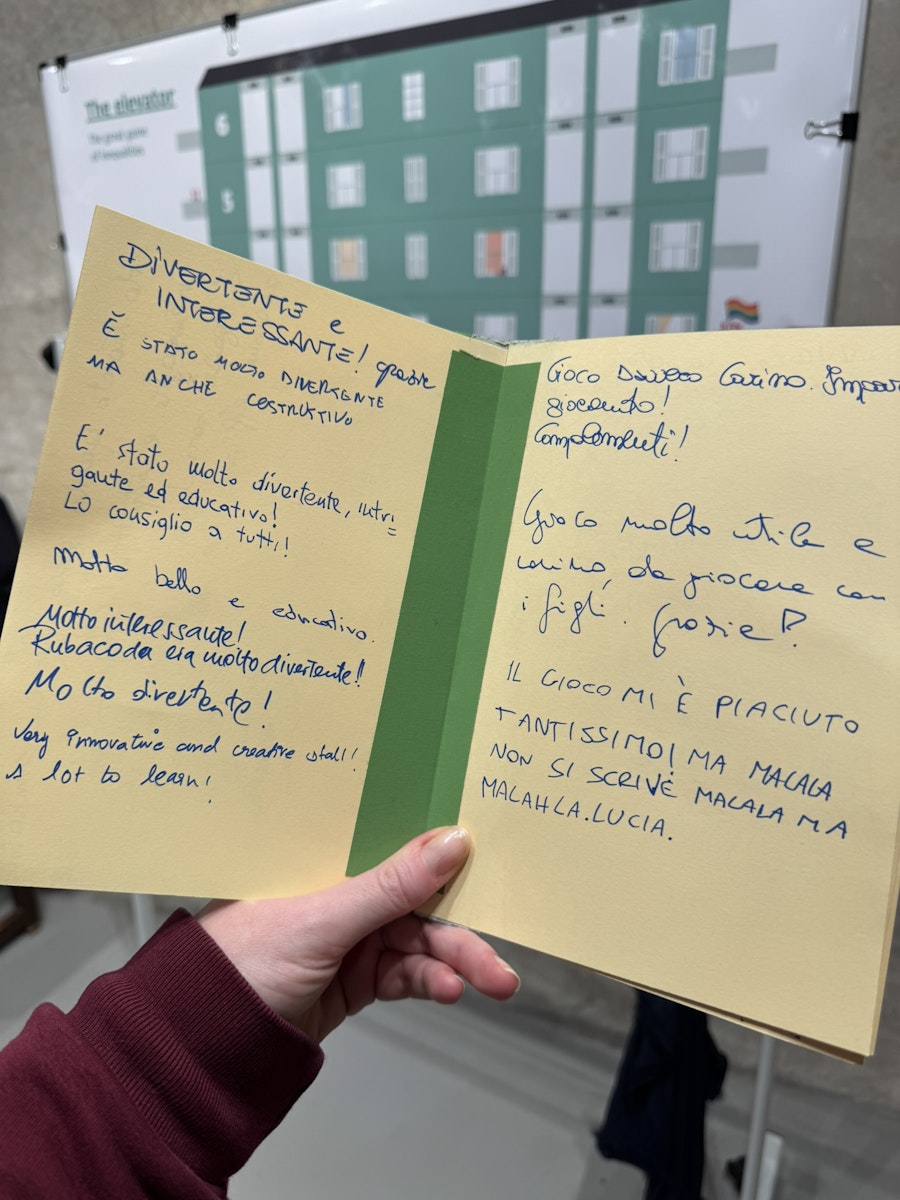 The elevator
The great game
of inequalities
6
5
DIVERTENTE e
INTERESSANTE! grazie
È STATO MOLTO DIVERTENTE
MA ANCHE COSTRUTTIVO
E' stato molto divertente, intri=
gante ed educativo!
Lo consiglio a tutti!
Molto bello e educativo.
Molto interessante!
Rubacoda era molto divertente!!
Molto divertente!
Very innovative and creative stall!
A lot to learn!
Gioco Davvero Carino. Impar
giocando!
Complimenti!
Gioco molto utile e
carino, da giocare con
i figli. Grazie!
IL GIOCO MI È PIACIUTO
TANTISSIMO! MA MALALA
NON SI SCRIVE MALALA MA
MALAHLA. LUCIA.